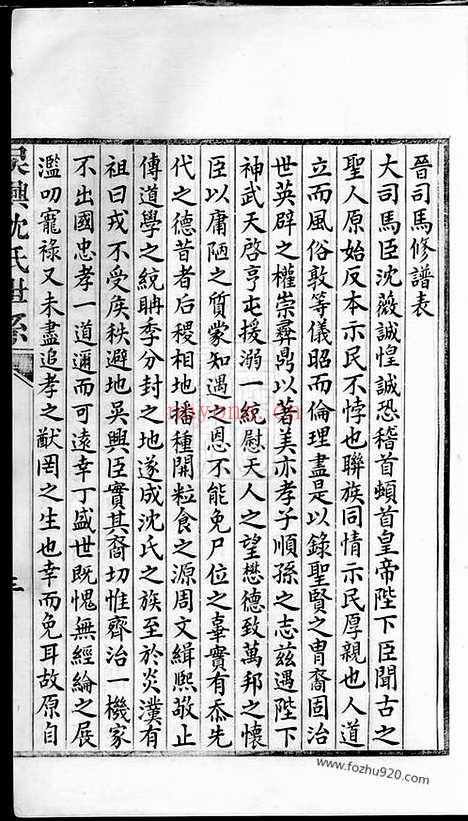 晉司馬修譜表
大司馬臣沈薇誠惶誠恐稽首頓首皇帝陛下臣聞古之
聖人原始反本示民不悖也聯族同情示民厚親也人道
立而風俗敦等儀昭而倫理盡是以錄聖賢之冑裔固治
世英辟之權崇彞鼎以著美亦孝子順孫之志茲遇陛下
神武天啓亨屯援溺一統慰天人之望懋德致萬邦之懷
臣以庸陋之質蒙知遇之恩不能免尸位之辜實有忝先
代之德昔者后稷相地播種開粒食之源周文緝熙敬止
傳道學之統聃季分封之地遂成沈氏之族至於炎漢有
祖曰戎不受侯秩避地吳興臣實其裔切惟齊治一機家
不出國忠孝一道邇而可遠幸丁盛世既愧無經綸之展
濫叨寵祿又未盡追孝之猷罔之生也幸而免耳故原自
吳興沈氏世系
三
nbyunn.cn
www.fozhu920.com